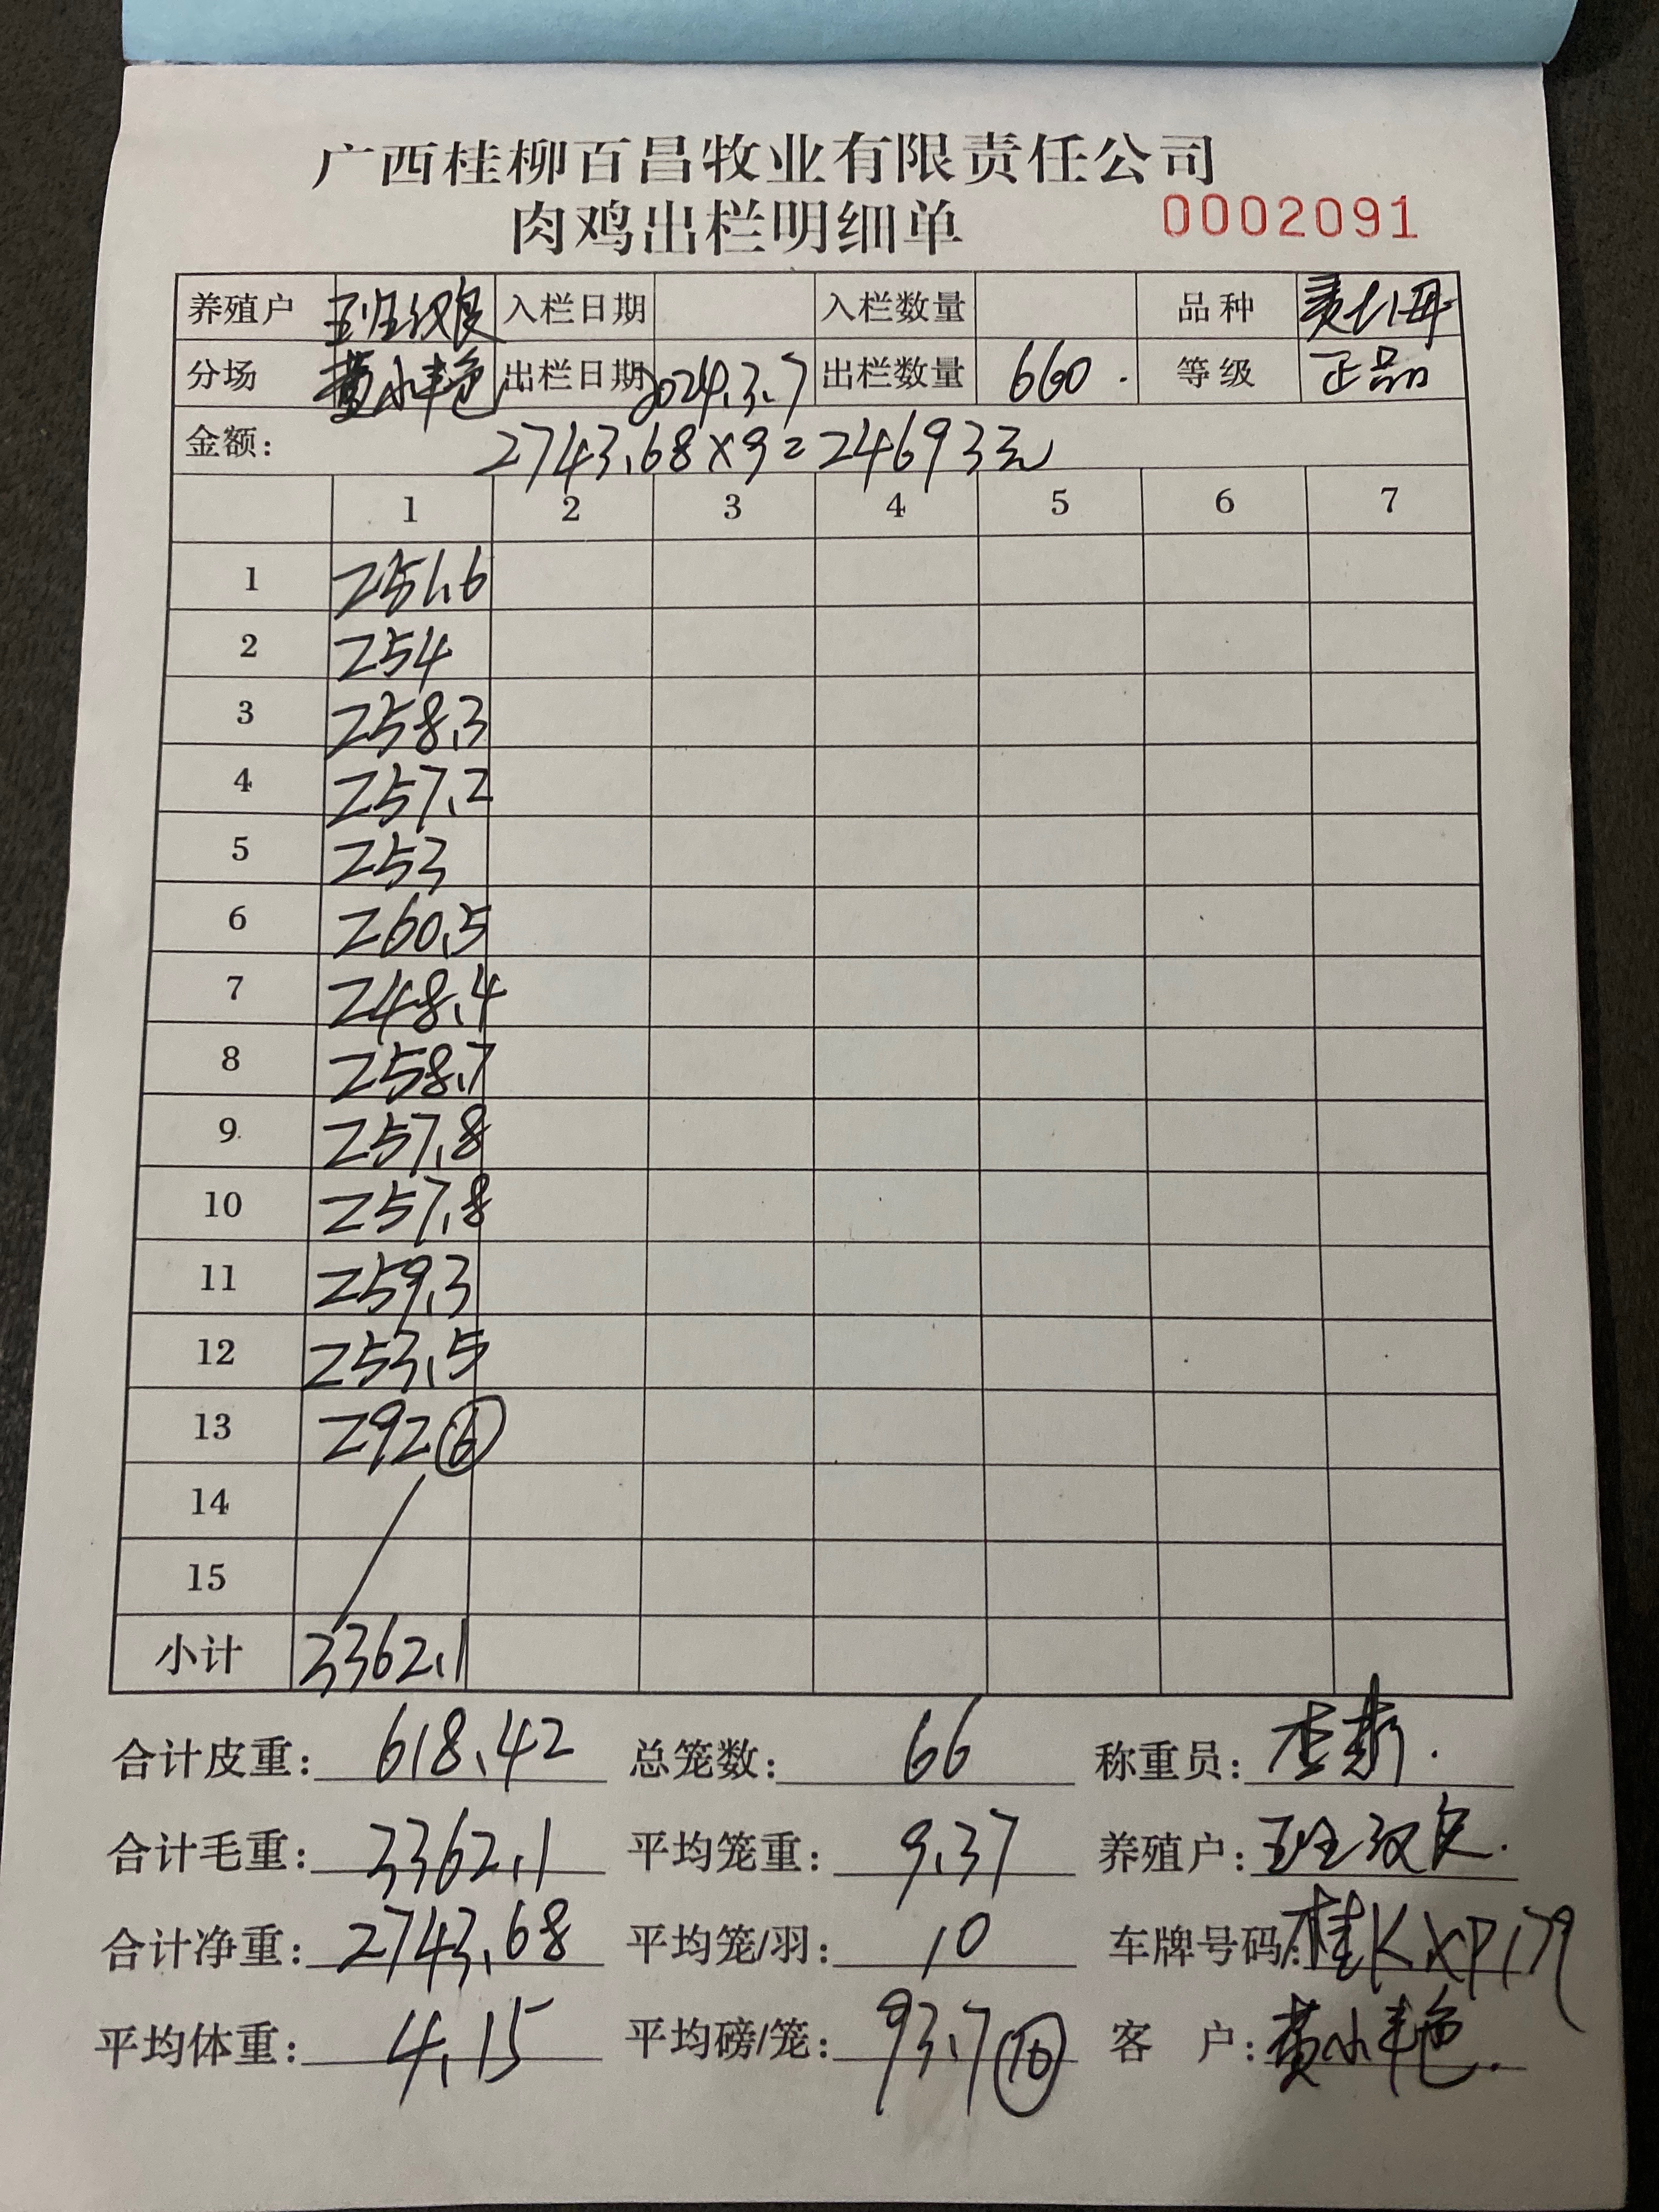 广西桂柳百昌牧业有限责任公司
肉鸡出栏明细单 0002091
养殖户 班汉良 入栏日期 入栏数量 品种
分场 黄小艳 出栏日期 2024.3.7 出栏数量 660. 等级 正品
金额: 2743.68×9=24693元
1 2 3 4 5 6 7
1 251.6
2 254
3 258.3
4 257.2
5 253
6 260.5
7 248.4
8 258.7
9 257.8
10 257.8
11 259.3
12 253.5
13 292⑥
14
15
小计 3362.1
合计皮重: 618.42 总笼数: 66 称重员:
合计毛重: 3362.1 平均笼重: 9.37 养殖户: 班汉良.
合计净重: 2743.68 平均笼/羽: 10 车牌号码: 桂KXP179
平均体重: 4.15 平均磅/笼: 93.7⑩ 客 户: 黄小艳.